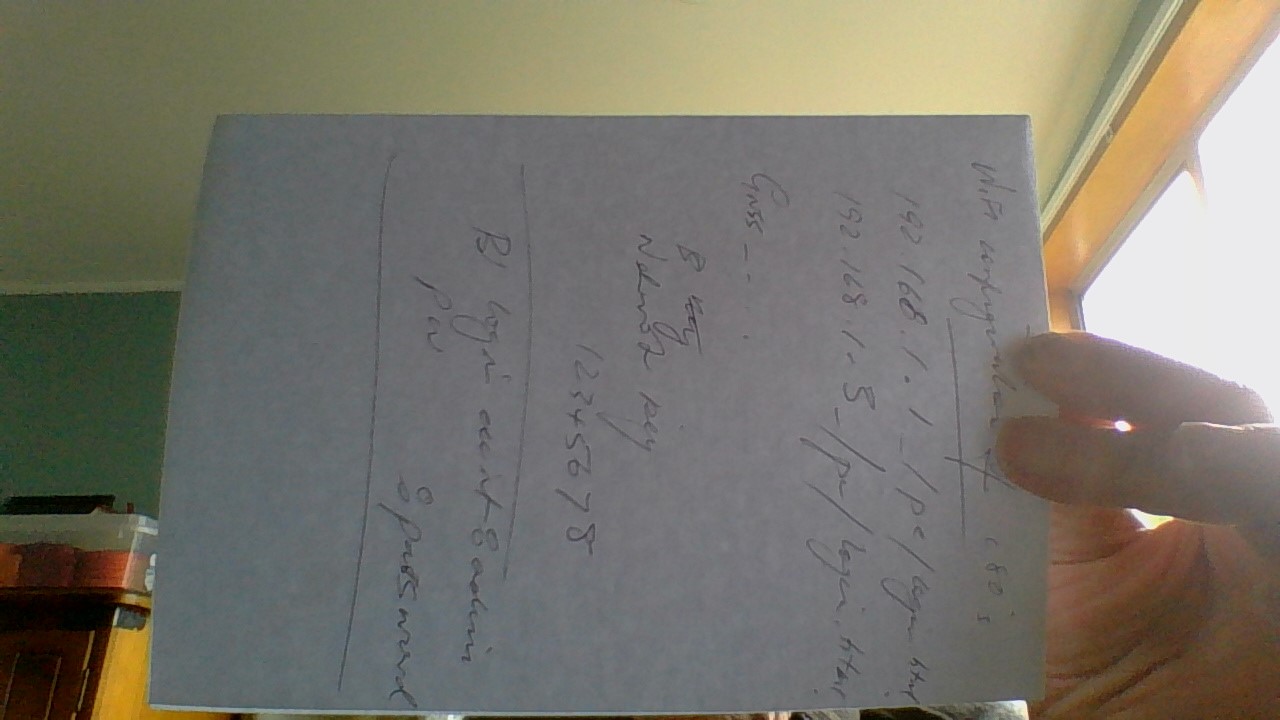 Wifi configuration of i80's
192.168.1.1_/pc/login.html
192.168.1.3_/pc/login.html
GNSS_....
B key
Network key
12345678
B) login :admin
pw :password